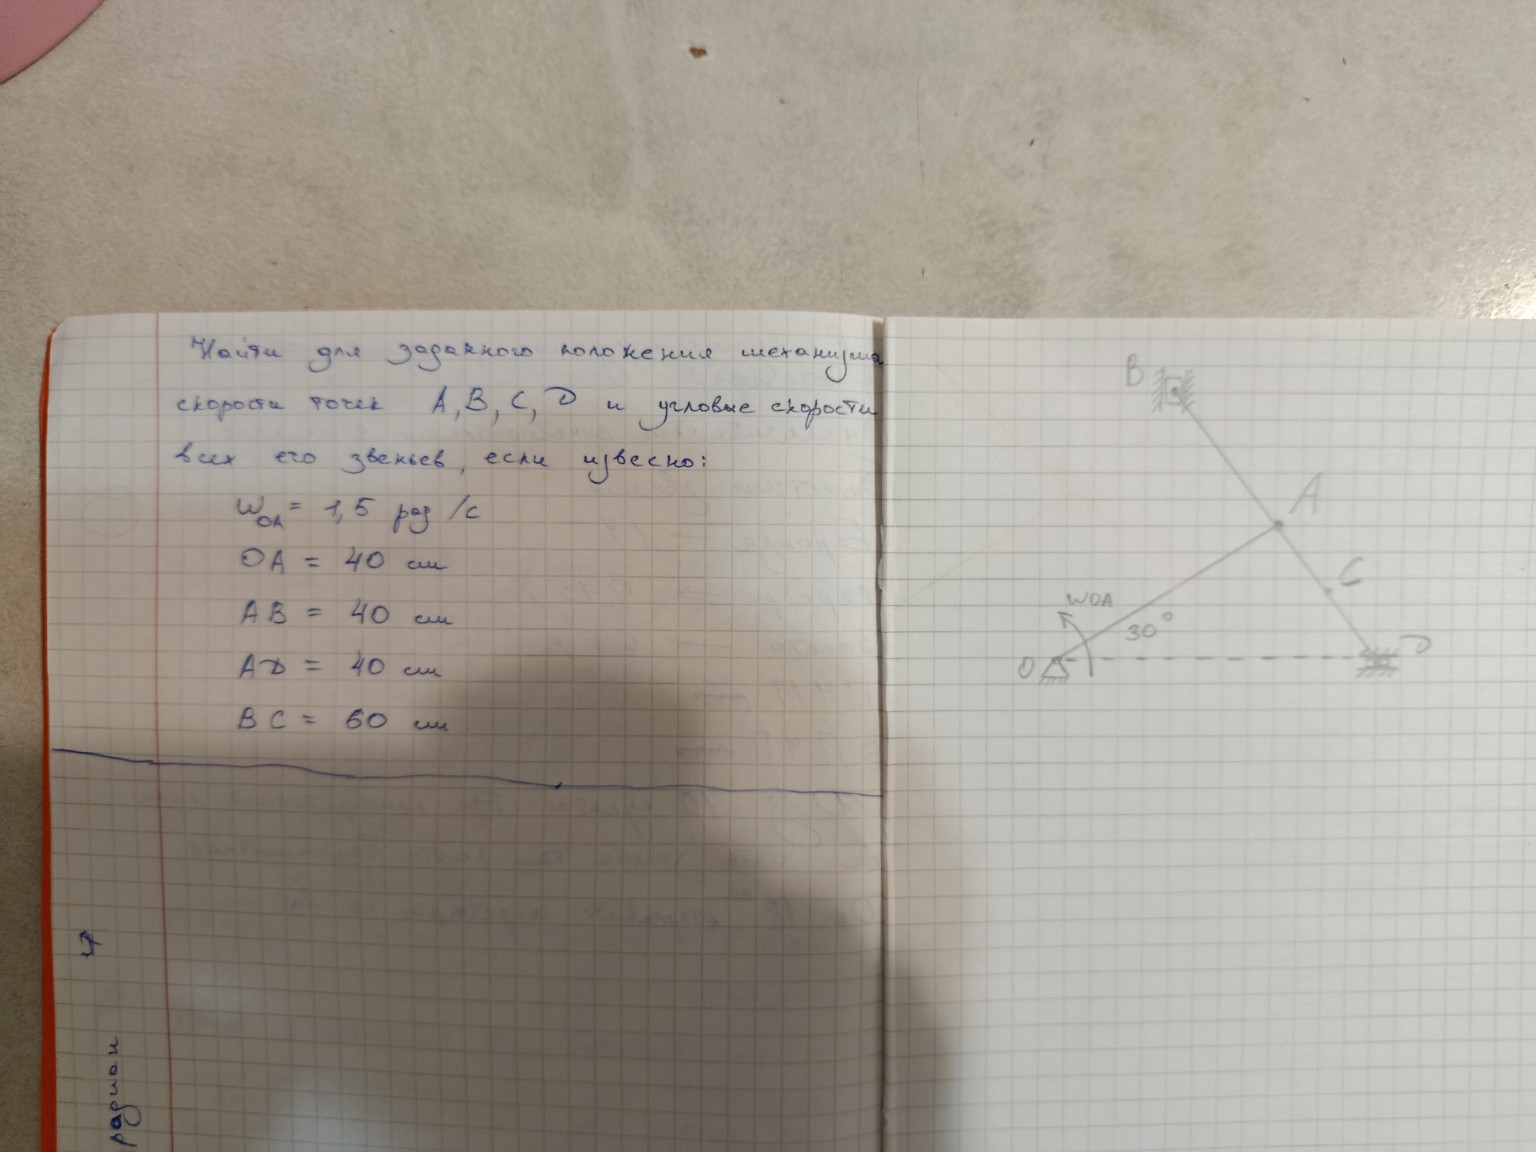 Найти для заданного положения механизма
скорости точек A, B, C, D и угловые скорости
всех его звеньев, если извесно:
W_OA = 1,5 рад/с
OA = 40 см
AB = 40 см
AD = 40 см
BC = 60 см
радиан
B
A
C
WOA
30°
O
D